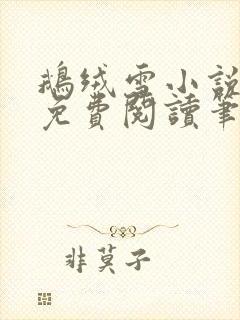 鵝絨雪小說
免費閱讀筆
非莫子